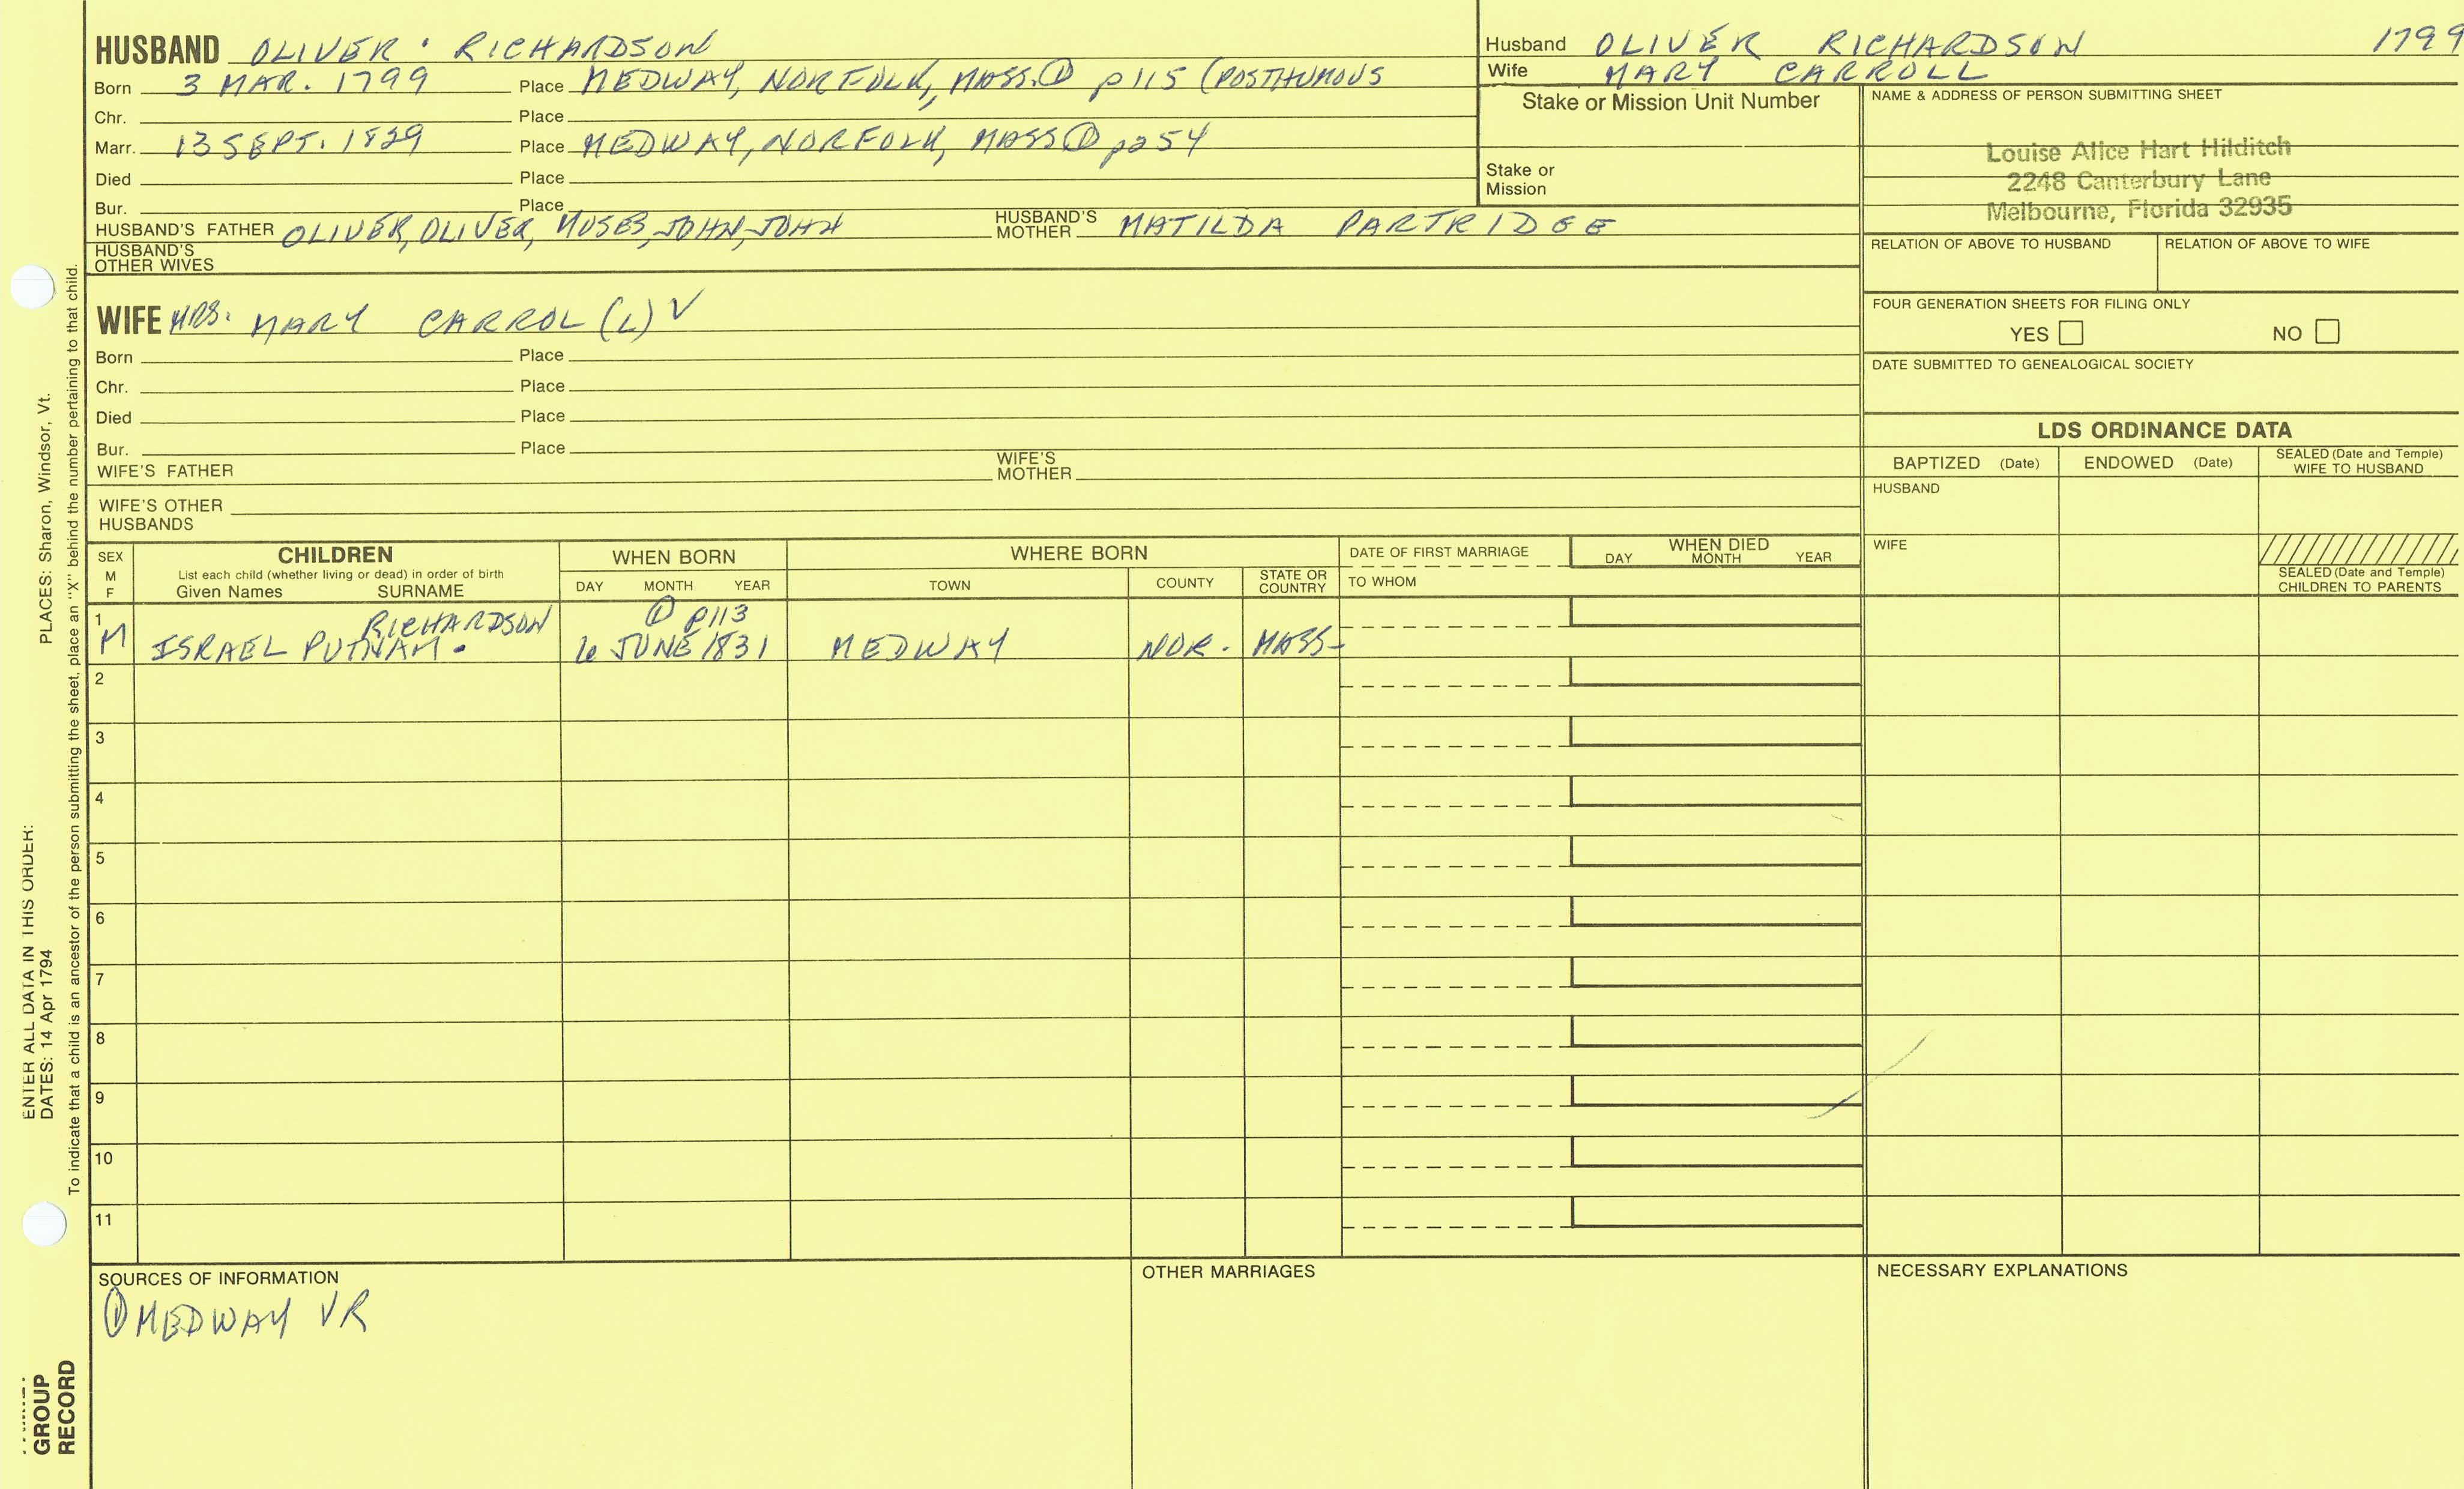 HUSBAND OLIVER · RICHARDSON
Born 3 MAR. 1799 Place MEDWAY, NORFOLK, MASS. ① p115 (POSTHUMOUS
Chr. Place
Marr. 13 SEPT. 1829 Place MEDWAY, NORFOLK, MASS ① p254
Died Place
Bur. Place
HUSBAND'S FATHER OLIVER, OLIVER, MOSES, JOHN, JOHN HUSBAND'S MOTHER MATILDA PARTRIDGE
HUSBAND'S
OTHER WIVES
Husband OLIVER RICHARDSON 1799
Wife MARY CARROLL
Stake or Mission Unit Number
Stake or
Mission
NAME & ADDRESS OF PERSON SUBMITTING SHEET
Louise Alice Hart Hilditch
2248 Canterbury Lane
Melbourne, Florida 32935
RELATION OF ABOVE TO HUSBAND RELATION OF ABOVE TO WIFE
FOUR GENERATION SHEETS FOR FILING ONLY
YES NO
DATE SUBMITTED TO GENEALOGICAL SOCIETY
WIFE MRS. MARY CARROL (L) V
Born Place
Chr. Place
Died Place
Bur. Place
WIFE'S FATHER WIFE'S MOTHER
WIFE'S OTHER
HUSBANDS
LDS ORDINANCE DATA
BAPTIZED (Date) ENDOWED (Date) SEALED (Date and Temple) WIFE TO HUSBAND
HUSBAND
WIFE
SEALED (Date and Temple)
CHILDREN TO PARENTS
SEX
M
F
CHILDREN
List each child (whether living or dead) in order of birth
Given Names SURNAME
WHEN BORN
DAY MONTH YEAR
WHERE BORN
TOWN COUNTY STATE OR COUNTRY
DATE OF FIRST MARRIAGE
TO WHOM
WHEN DIED
DAY MONTH YEAR
1 RICHARDSON ① p113
M ISRAEL PUTNAM. 6 JUNE 1831 MEDWAY NOR. MASS-
2
3
4
5
6
7
8
9
10
11
SOURCES OF INFORMATION
① MEDWAY VR
OTHER MARRIAGES
NECESSARY EXPLANATIONS
ENTER ALL DATA IN THIS ORDER:
DATES: 14 Apr 1794 PLACES: Sharon, Windsor, Vt.
To indicate that a child is an ancestor of the person submitting the sheet, place an "X" behind the number pertaining to that child.
GROUP
RECORD